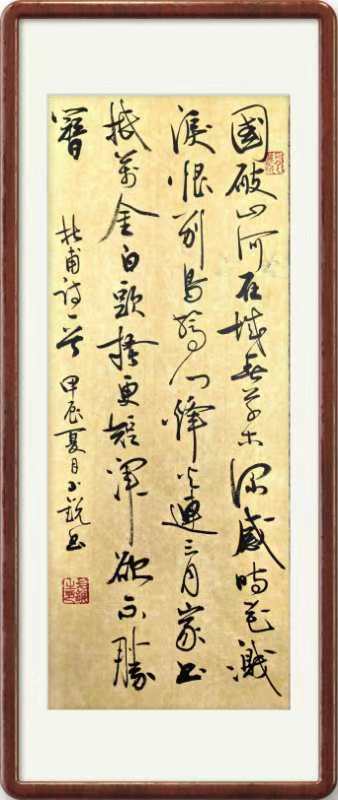 國破山河在城春草木深感時花濺
淚恨别鳥驚心烽火連三月家书
抵萬金白頭搔更短渾欲不勝
簪
杜甫詩一首 甲辰夏月小书